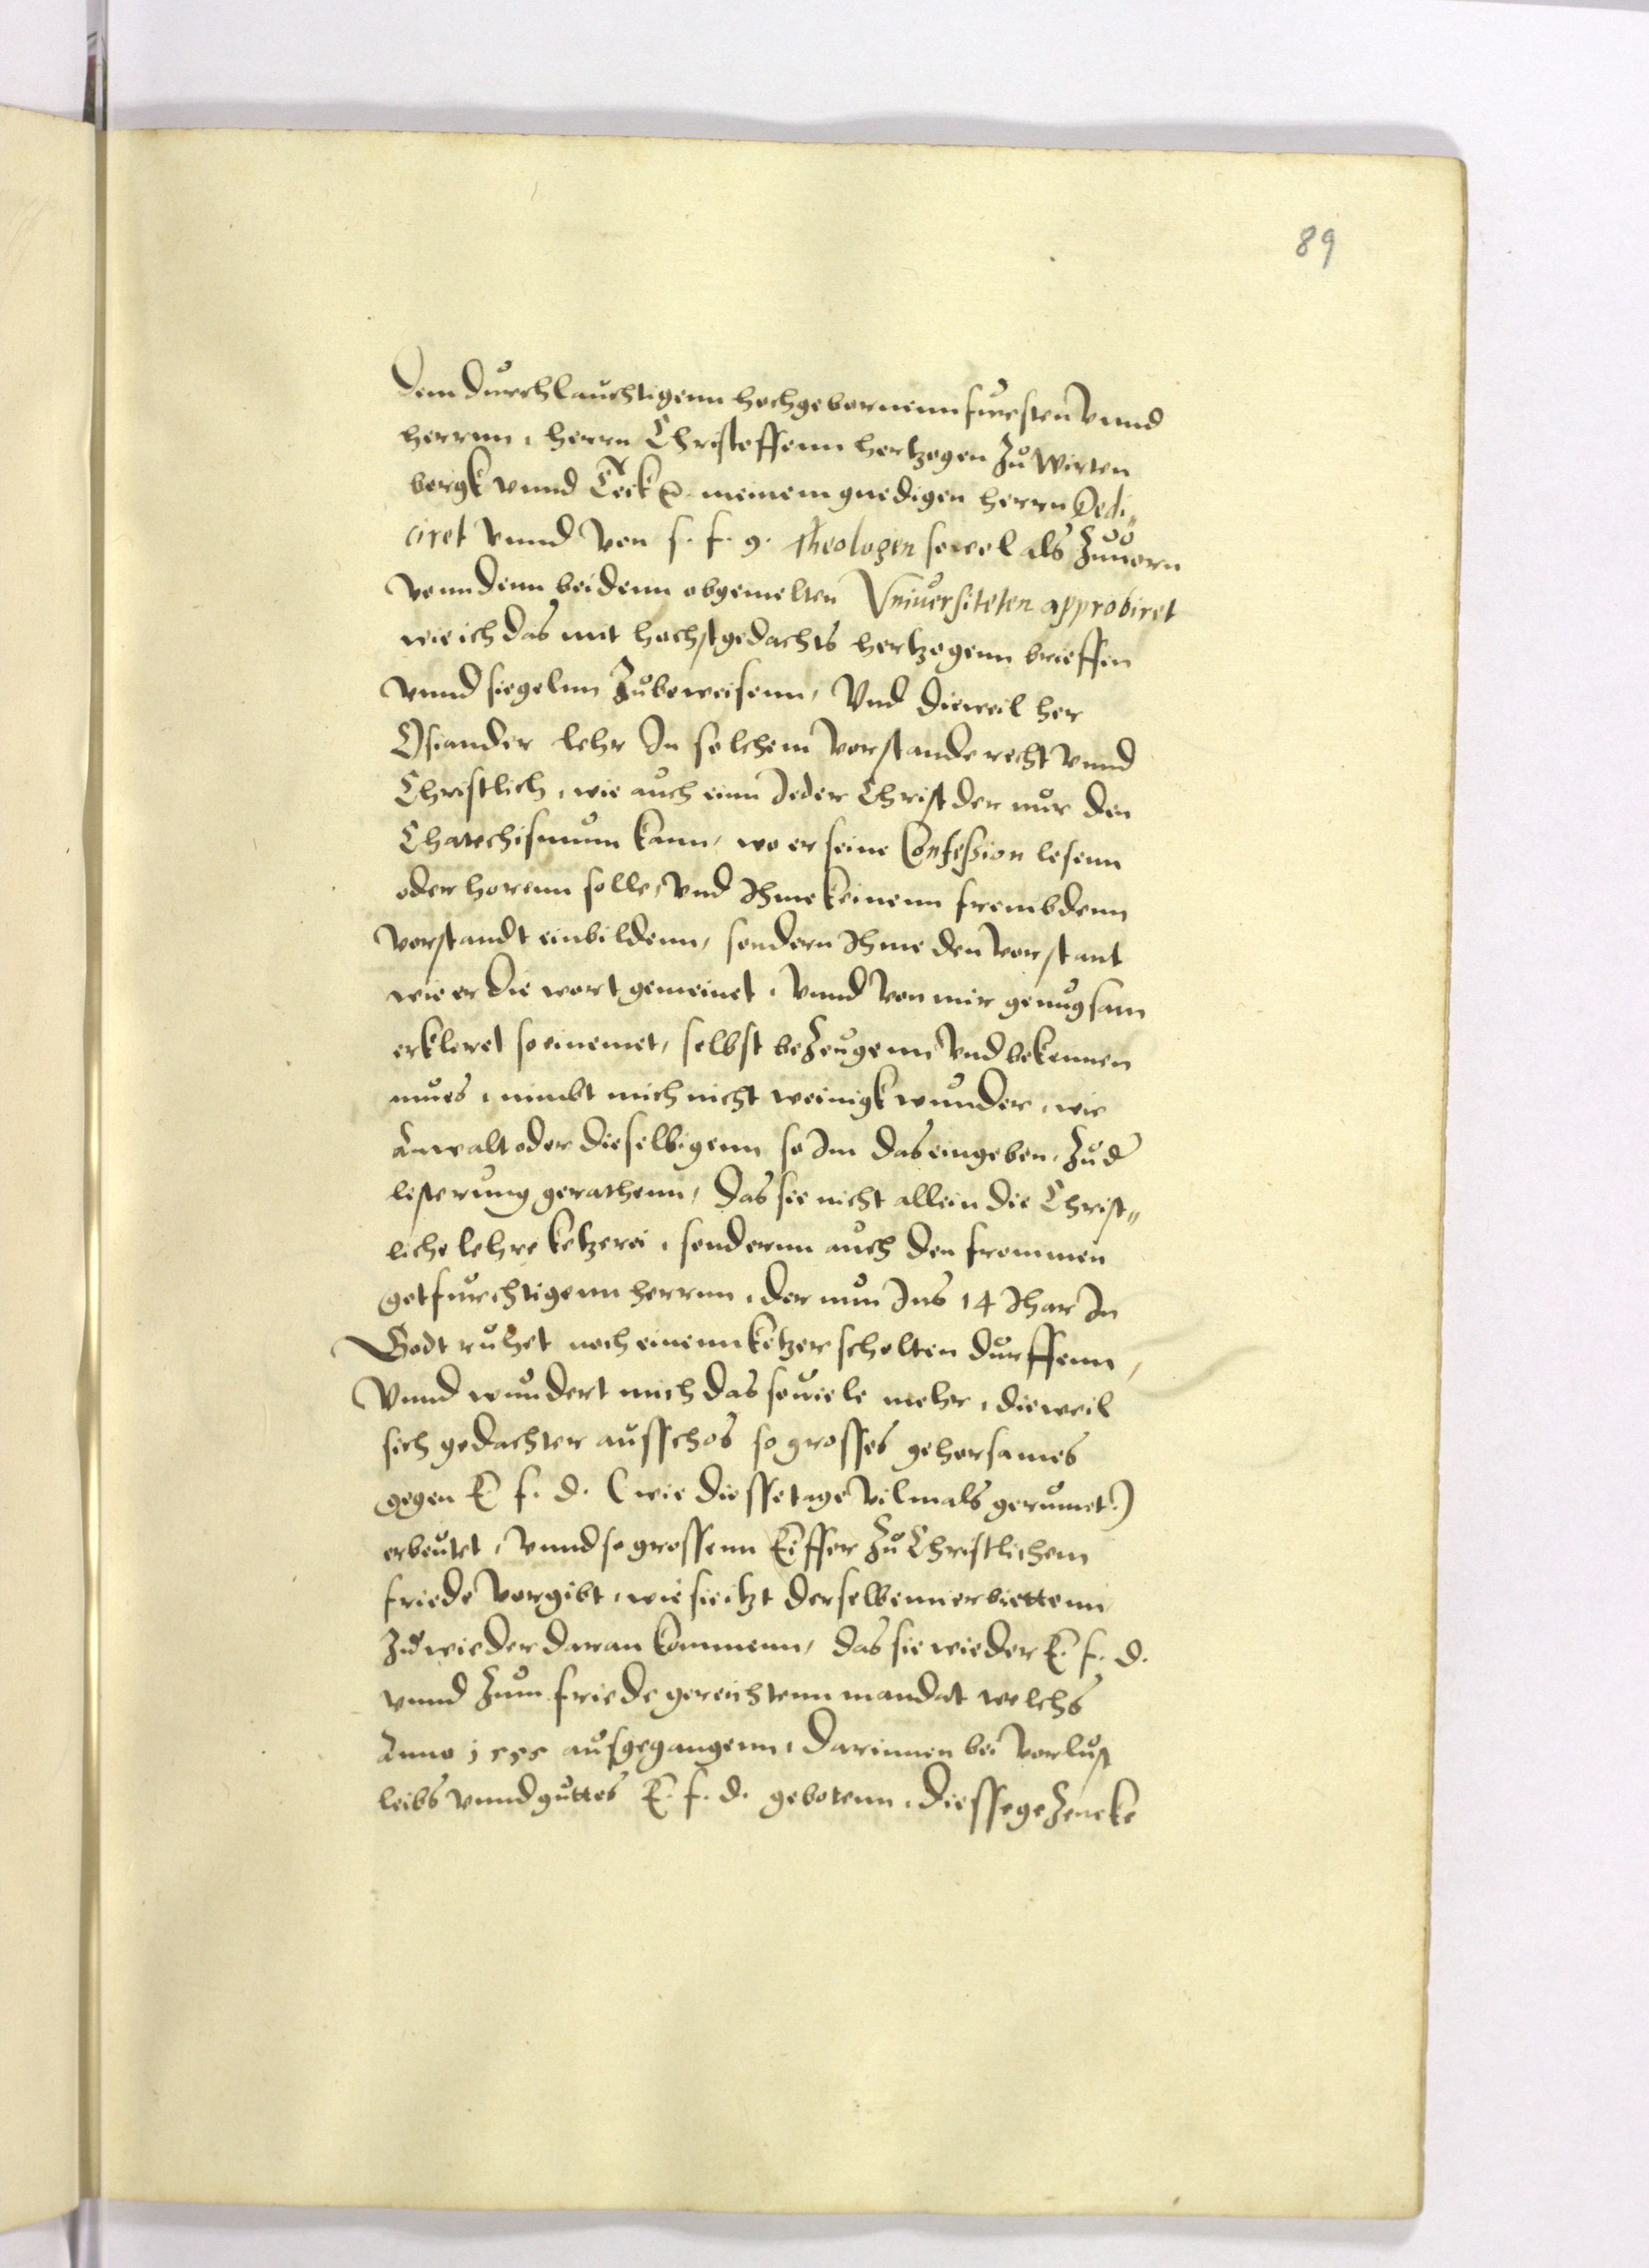 89
Dem Durchlauchtigenn hochgebornenn fursten vnnd
herrnn, herrn Christoffenn hertzogen zu Wirten
bergk vnnd Teck ꝛc. meinem gnedigen herrn Dedi„
ciret vnnd von s. f. g. Theologen sowol als zuuorn
vonn denn beidenn obgemelten Vniuersiteten approbiret
wie ich das mit hochstgedachts hertzogenn brieffen
vnnd siegelnn zubeweisenn, Vnd dieweil her
Osiander lehr In solchem vorstande recht vnnd
Christlich, wie auch einn Jeder Christ der nur den
Chatechismum kann, wo er seine Confession lesenn
oder horenn solle, vnd Ihme keinenn frembdenn
vorstandt einbildenn, sondern Ihme den vorstant
wie er die wort gemeinet, vnnd von mir genugsam
erkleret so einemet, selbst bezeugenn vnd bekennen
mues, nimbt mich nicht weinigk wunder, wie
Anwalt oder dieselbigenn so Im das eingeben, zu d
lesterung gerathenn, das sie nicht allein die Christ„
liche lehre ketzerei, sondernn auch den frommen
gotfurchtigenn herrnn, der nun Ins 14 Jhar In
Godt ruhet noch einenn ketzer schelten durffenn,
Vnnd wundert mich das souiele mehr, dieweil
sich gedachter ausschos so grosses gehorsames
gegen E f. d. (wie diesse tage vilmals gerumet.)
erbeutet, vnnd so grossenn Eiffer zu Christlichem
friede vorgibt, wie sie itzt derselbenn erbiettenn
zuwieder daran kommenn, das sie wieder E. f. d.
vnnd zum friede gereichtenn mandat welchs
Anno 1555 ausgegangenn, darinnen bei vorlust
leibs vnnd guttes E. f. d. gebotenn, diesse gezencke